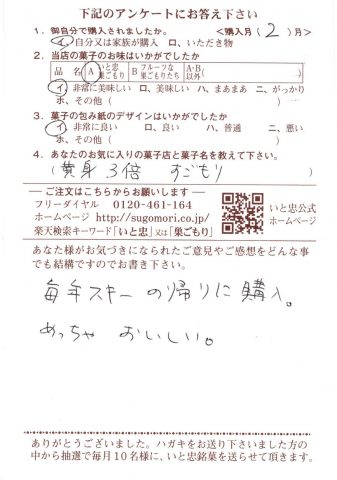 下記のアンケートにお答え下さい
1．御自分で購入されましたか。 <購入月（2）月>
イ、自分又は家族が購入 ロ、いただき物
2．当店の菓子のお味はいかがでしたか
品 名 A いと忠巣ごもり B フルーツな巣ごもりたち A・B以外（ ）
イ、非常に美味しい ロ、美味しい ハ、まあまあ ニ、がっかり
ホ、その他（ ）
3．菓子の包み紙のデザインはいかがでしたか
イ、非常に良い ロ、良い ハ、普通 ニ、悪い
ホ、その他（ ）
4．あなたのお気に入りの菓子店と菓子名を教えて下さい。
（黄身3倍 すごもり）
ご注文はこちらからお願いします
フリーダイヤル 0120-461-164
ホームページ http://sugomori.co.jp/
楽天検索キーワード「いと忠」又は「巣ごもり」
いと忠公式
ホームページ
あなた様がお気づきになられたご意見やご感想をどんな事
でも結構ですのでお書き下さい。
毎年スキーの帰りに購入。
めっちゃ おいしい。
ありがとうございました。ハガキをお送り下さいました方の
中から抽選で毎月10名様に、いと忠銘菓を送らせて頂きます。